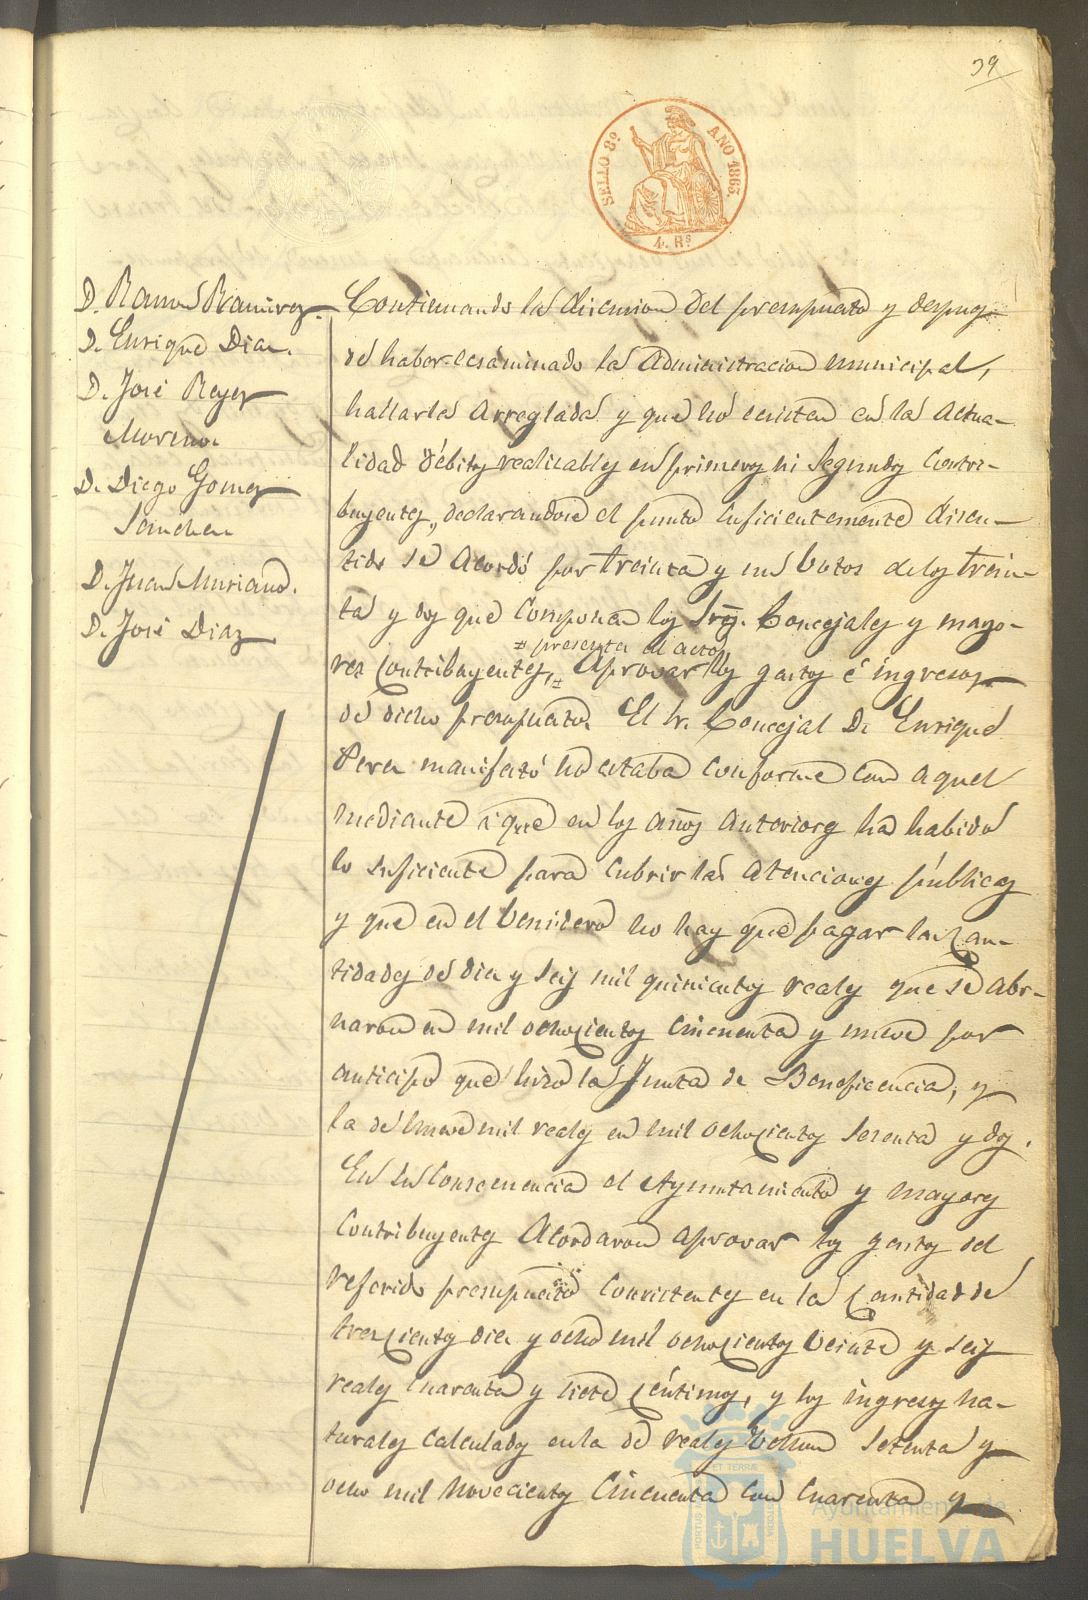 39
SELLO 8º AÑO 1863.
4. Rs
D. Ramon Ramirez.
D. Enrique Diaz.
D. José Reyes
Moreno.
D. Diego Gomez
Sanchez.
D. Juan Muriano.
D. José Diaz
Continuando la discusion del presupuesto y despues
de haber ecsaminado la administracion municipal,
hallarla arreglada y que no ecsisten en la actua-
lidad débitos realizables en primeros ni segundos contri-
buyentes, declarandose el punto suficientemente discu-
tido se acordó por treinta y un botos de los trein-
ta y dos que componen los Sres. Concejales y mayo-
= presente al acto
res contribuyentes, = aprovar los gastos é ingresos
de dicho presupuesto. El Sr. Concejal D. Enrique
Perez manifestó no estaba conforme con aquel
mediante á que en los años anteriores ha habido
lo suficiente para cubrir las atenciones públicas
y que en el benidero no hay que pagar las can-
tidades de diez y seis mil quinientos reales que se abo-
naron en mil ochocientos cincuenta y nueve por
anticipo que hizo la Junta de Beneficencia, y
la de nueve mil reales en mil ochocientos sesenta y dos.
En su consecuencia el Ayuntamiento y mayores
contribuyentes acordaron aprovar los gastos del
referido presupuesto consistentes en la cantidad de
trescientos diez y ocho mil ochocientos beinte y seis
reales cuarenta y siete céntimos, y los ingresos na-
turales calculados en la de reales vellon setenta y
ocho mil novecientos cincuenta con cuarenta y
PORTUS ET TERRAE CUSTODIA
Ayuntamiento de
HUELVA